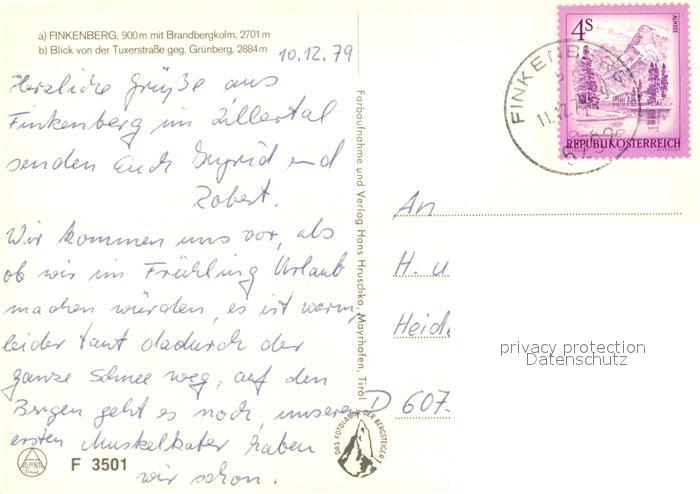 a) FINKENBERG, 900 m mit Brandbergkolm, 2701 m
b) Blick von der Tuxerstraße geg. Grünberg, 2884 m
10.12.79
Herzliche Grüße aus
Finkenberg im Zillertal
senden Euch Ingrid und
Robert.
Wir kommen uns vor, als
ob wir im Frühling Urlaub
machen würden, es ist warm,
leider taut dadurch der
ganze Schnee weg, auf den
Bergen geht es noch, unseren
ersten Muskelkater haben
wir schon.
ALPINA
F 3501
Farbaufnahme und Verlag Hans Hruschka, Mayrhofen, Tirol
DAS FOTOLABOR DER BERGSTEIGER
4S
ALMSEE
REPUBLIK ÖSTERREICH
FINKENBERG
11.12.79
An
H. u
Heid
D 607
privacy protection
Datenschutz